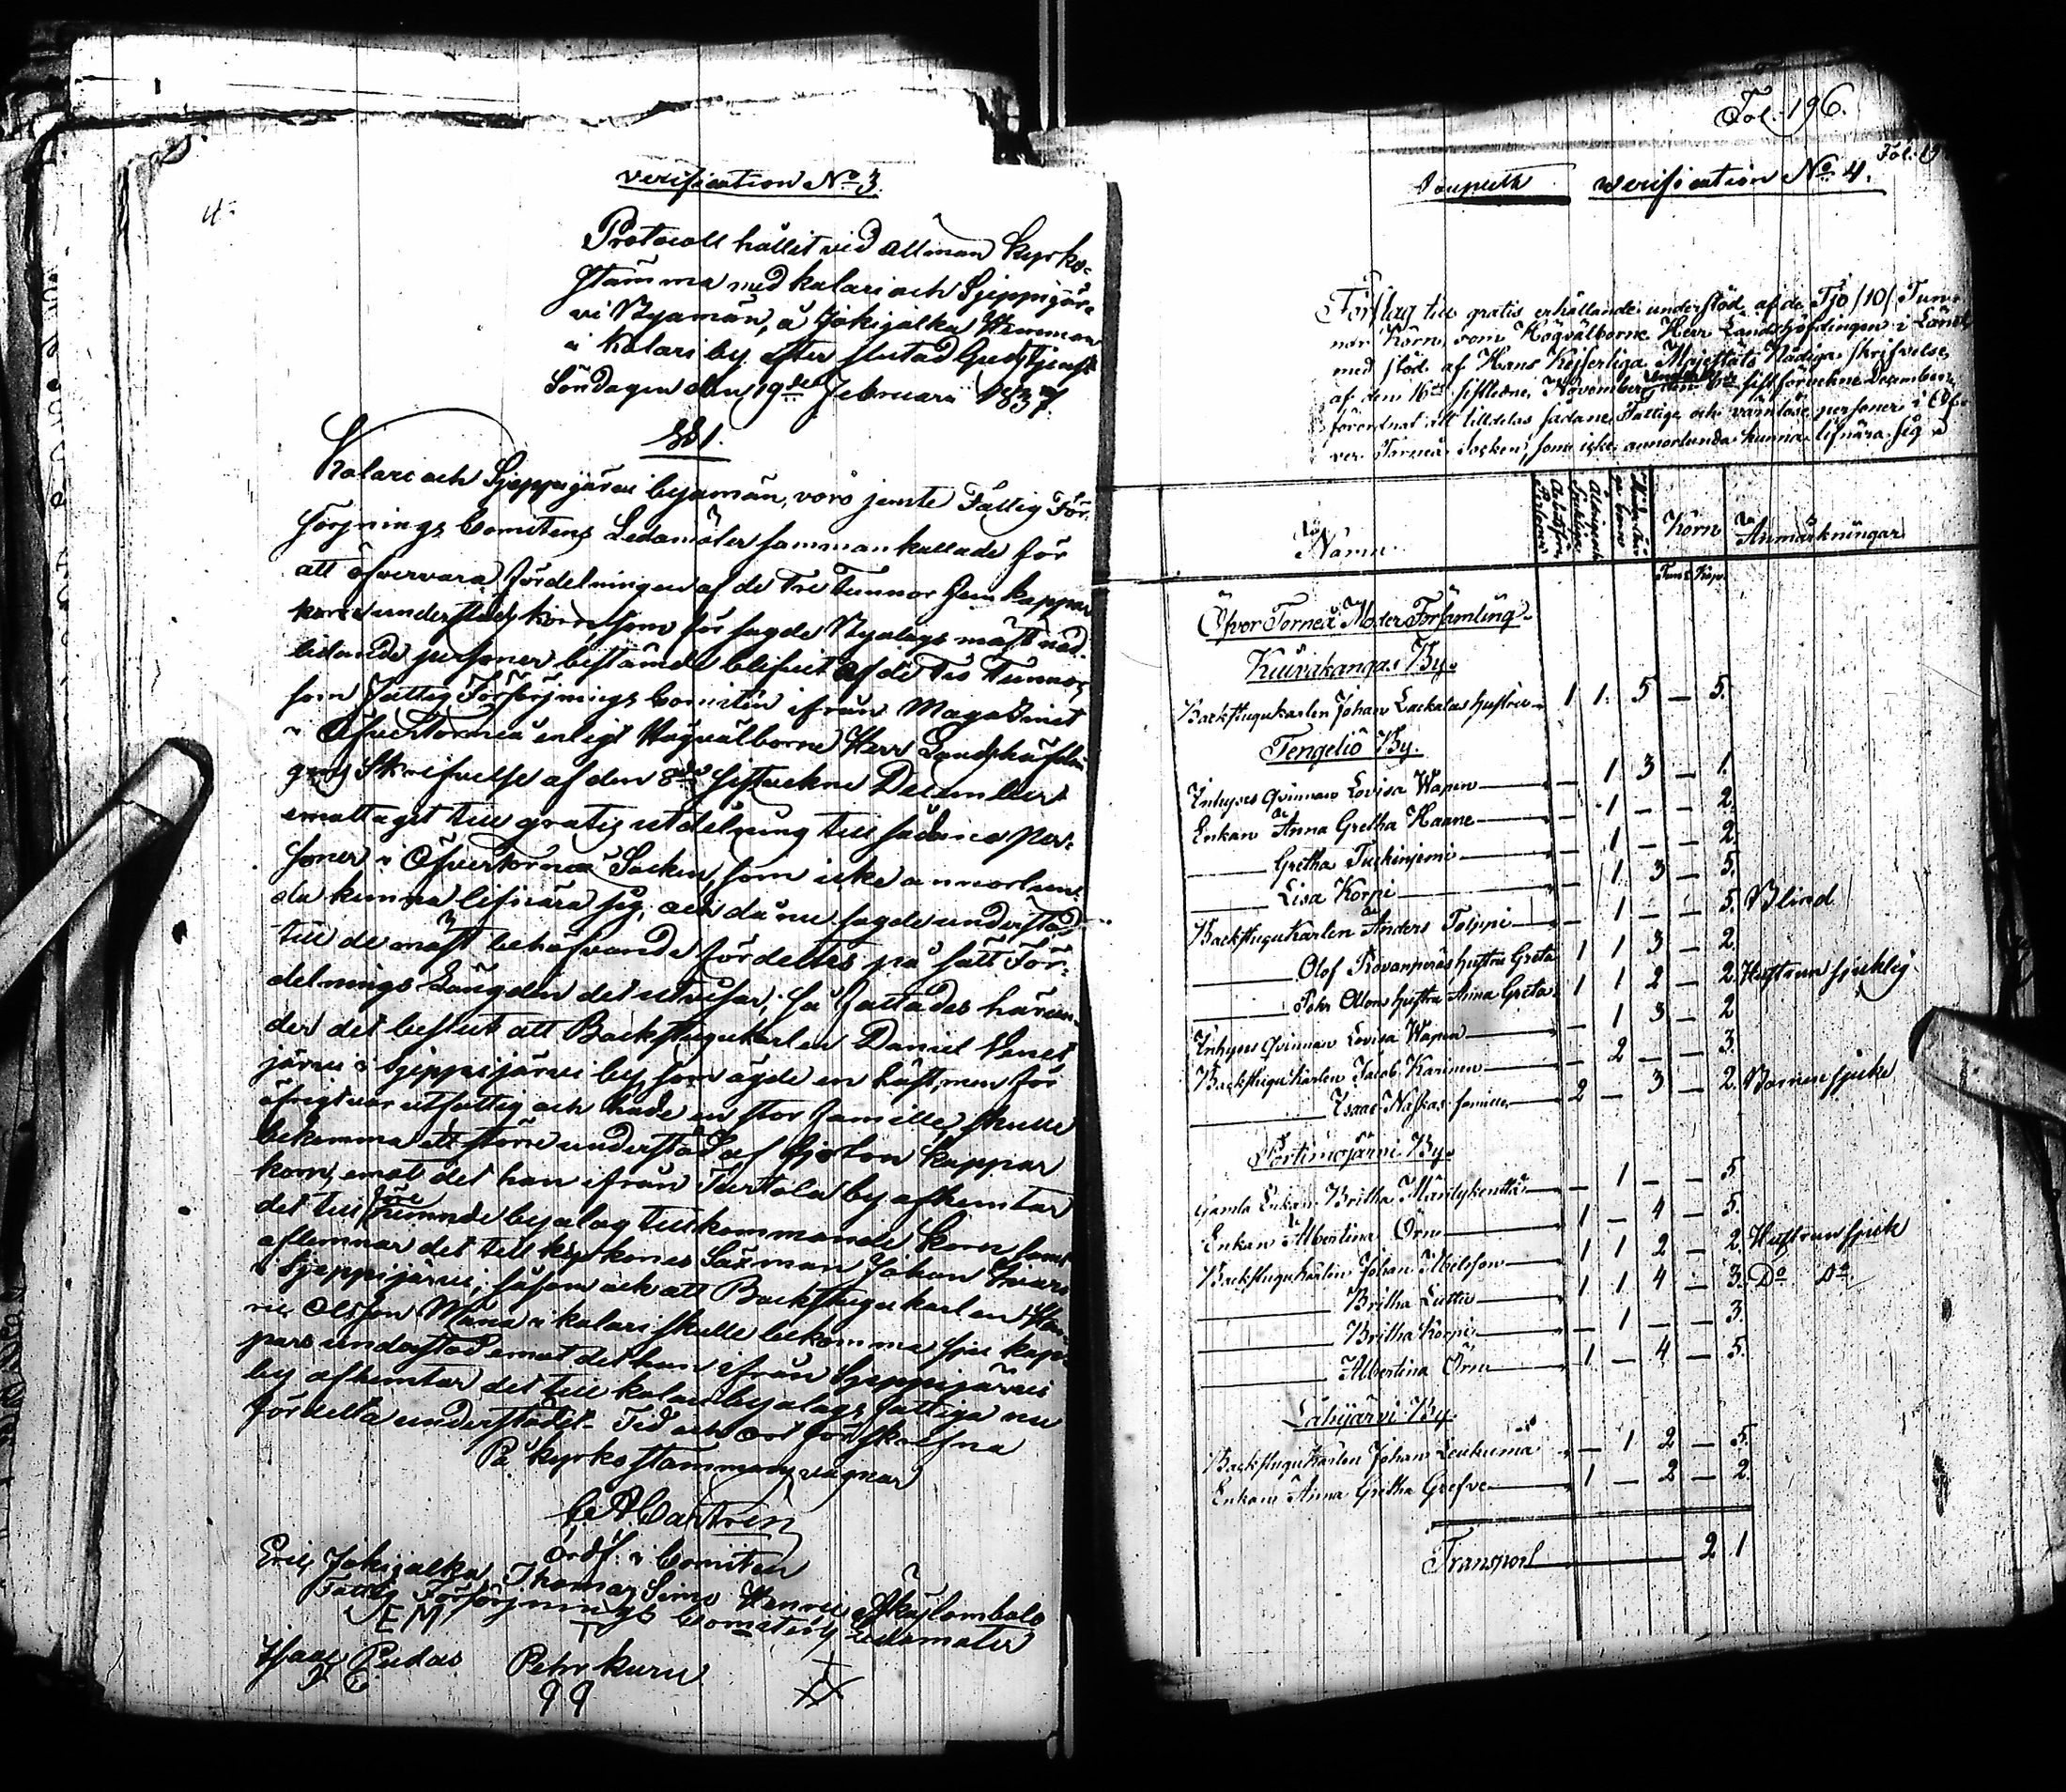 verification No 3.
Protocoll hållit vid allmän Kyrko-
stämma med Kolari och Sjeppijär-
vi Byamän, å Jokijalka Hemman
i Kolari by efter slutad Gudstjenst
Söndagen den 19de Februarii 1837.
§ 1.
Kolari och Sjeppijärvi byamän, voro jemte Fattig För-
sörjnings Comitens Ledamöter sammankallade för
att öfvervara fördelningen af de Tre Tunnor fem kappar
korn understöds korn, som för sagde Byalags mäst nöd-
lidande personer bestämde blifvit af de Tio Tunnor
som Fattig Försörjnings Comitén ifrån Magazinet
i Öfvertorneå enligt Högvälborne Herr Landshöfdin-
gens Skrifvelse af den 8de sistvekne December
emottaget till gratis utdelning till sådana per-
soner i Öfvertorneå Socken, som icke annorlun-
da kunna lifnära sig, och då nu sagde understöd
till de mäst behöfvande fördeltes på sätt För-
delnings Längden det utvisar; så fattades härun-
der det beslut att Backstugukarlen Daniel Venet
järvi i Sjeppijärvi by, som ägde en häst, men för
öfrigt var utfattig och hade en stor famille, skulle
bekomma ett större understöd af fjorton kappar
korn, emot det han ifrån Turtola by afhemtar
det till förenämnde byalag tillkommande korn samt
aflemnar det till kyrkones Sexman Johan
i Sjeppijärvi; såsom ock att Backstugukarlen Hen-
ric Olsson Mana i Kolari skulle bekomma sju kap-
pars understöd emot det han ifrån Sjeppijärvi
by afhemtar det till Kolari byalags fattiga nu
fördelta understödet. Tid och ort förskrefna
På Kyrkostämmans vägnar
C. A. Castrén
Ordf. i Comiten
Eric Jokijalka Thomas Simo Henric Äkäslombolo
Fattig Försörjnings Comiténs Ledamöter
EM
Isaac Pudas Pehr Kuru
99
Fol. 196.
Fol.
verification No 4.
Förslag till gratis erhållande understöd af de Tjo /10/ Tun-
nor Korn, som Högvälborne Herr Landshöfdingen i Länet
med stöd af Hans Kejserliga Majestäts Nådiga skrifvelse
af den 16de sistledne November sistförvekne December
förordnat att tilldelas sådane Fattige och värnlöse personer i Öf-
ver Torneå Socken, som icke annorlunda kunna lifnära sig
Namn Korn Anmärkningar
Tunr Kap.
Öfver Torneå Moder Församling
Kuivakangas By.
Backstugukarlen Johan Lackalas hustru 1 1 5 — 5.
Tengeliö By.
Inhyses Qvinnan Lovisa Wapen — 1 3 — 1.
Enkan Anna Gretha Haane — 1 — — 2.
Gretha — 1 — — 2
Lisa Korpi — 1 3 — 5.
Backstugukarlen Anders Tolppi — 1 — — 5. Blind
Olof Rovanperäs hustru Greta 1 1 3 — 2.
Pehr Ollons hustru Anna Greta 1 1 2 — 2. Hustrun sjuklig
Inhyses Qvinnan Lovisa Wapen — 1 3 — 2
Backstugu Karlen Jacob Karinen — 2 — — 3.
Isaac Naskas famille 2 — 3 — 2. Barnen sjuke
Portimojärvi By.
Gamla Enkan Britha Mäntykenttä — 1 — — 5.
Enkan Albertina Örn 1 — 4 — 5.
Backstugu Karlen Johan Abelsson 1 1 2 — 2. Hustrun sjuk
Britha Luttu 1 1 4 — 3. Do Do.
Britha Korpi — 1 — — 3.
Albertina Örn 1 — 4 — 5.
Lahijärvi By.
Backstugu Karlen Johan — 1 2 — 5.
Enkan Anna Gretha Grefve 1 — 2 — 2.
Transport 2 1